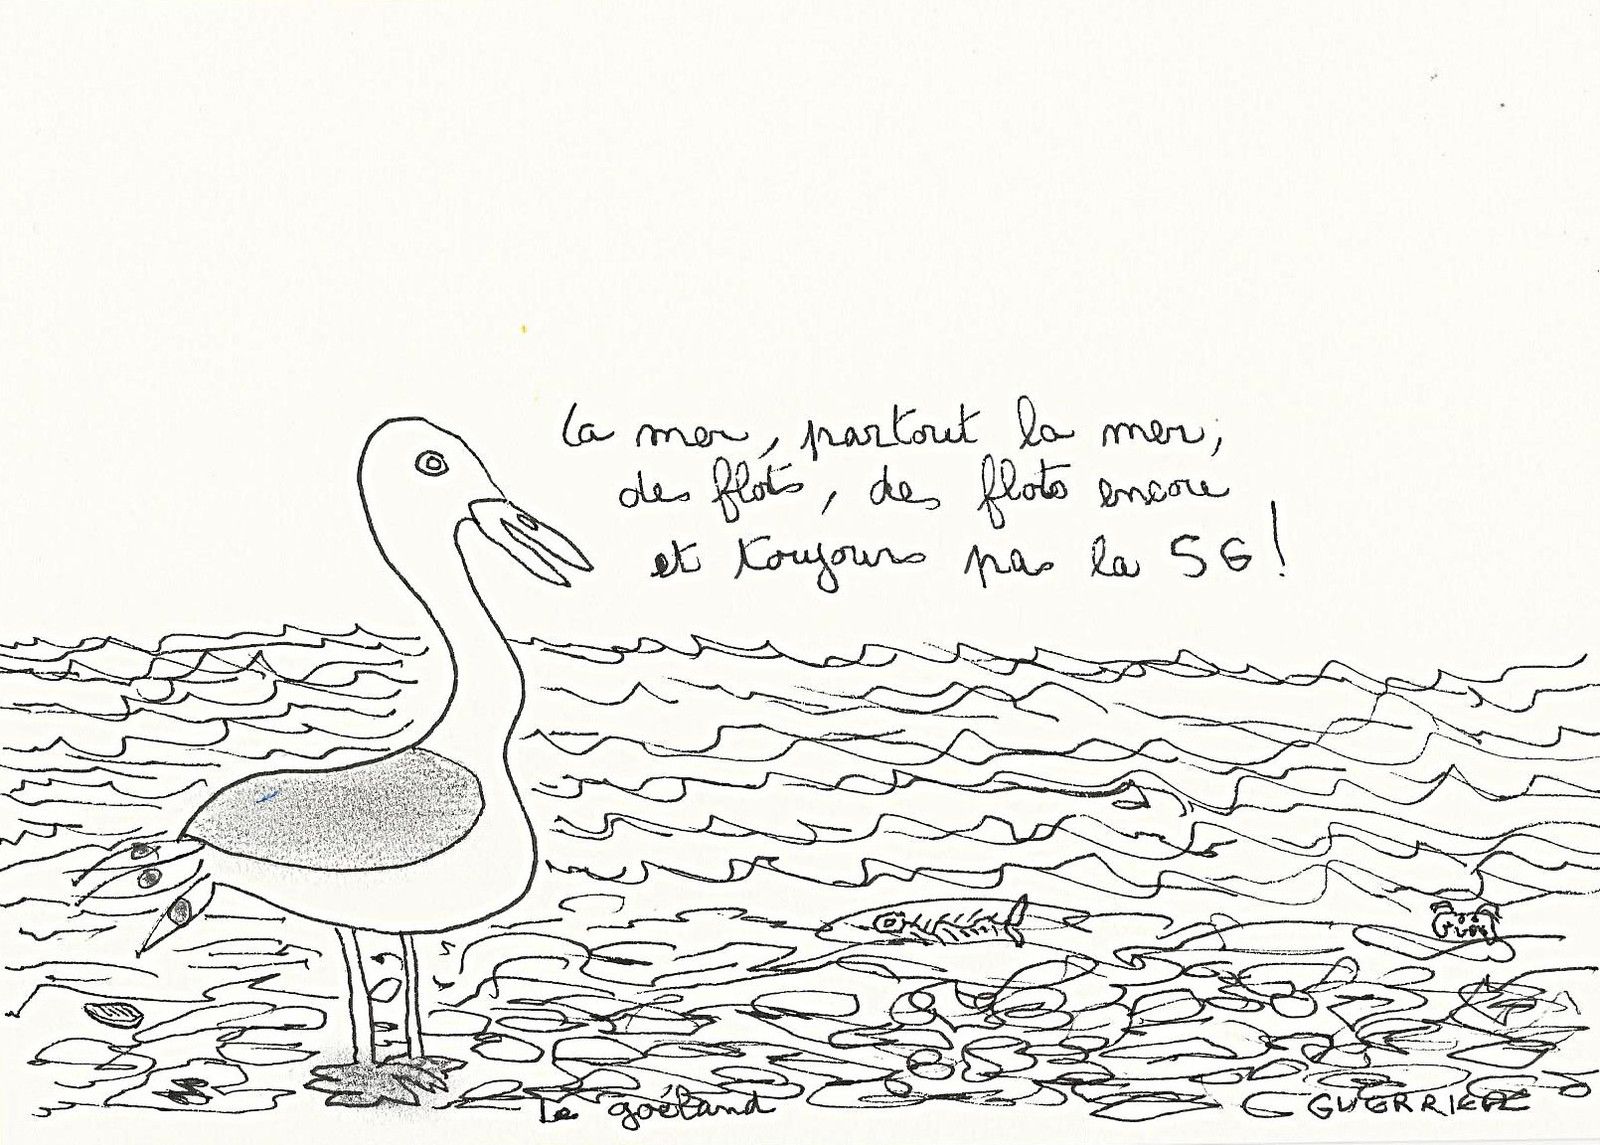 la mer, partout la mer,
des flots, des flots encore
et toujours pas la 5G!
Le goéland
G GUERRIERE